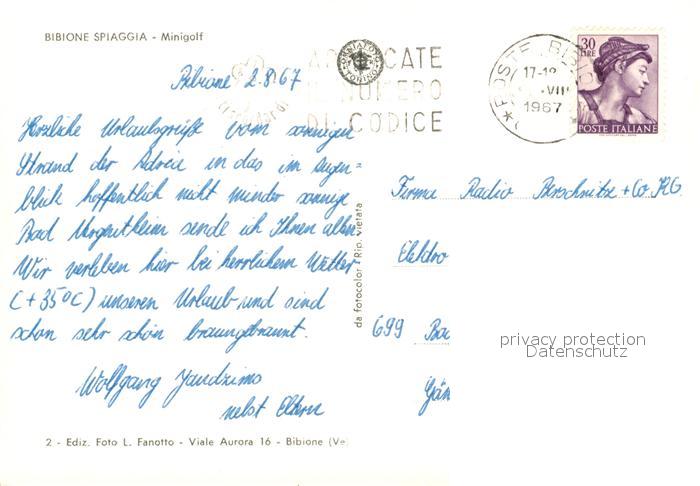 BIBIONE SPIAGGIA - Minigolf
Bibione 2.8.67
Herzliche Urlaubsgrüße vom sonnigen
Strand der Adria in das im Augen=
blick hoffentlich nicht minder sonnige
Bad Mergentheim sende ich Ihnen allen
Wir verleben hier bei herrlichem Wetter
(+35°C) unseren Urlaub und sind
schon sehr schön braungebrannt.
Wolfgang
nebst Eltern
2 - Ediz. Foto L. Fanotto - Viale Aurora 16 - Bibione (Ve)
da fotocolor - Rip. vietata
CATE
IL NUMERO
DI CODICE
POSTE BIBIO
17-18
VIII
1967
30
LIRE
POSTE ITALIANE
Firma Radio Berschnitz + Co. KG.
Elektro
699 Ba
Gän
privacy protection
Datenschutz